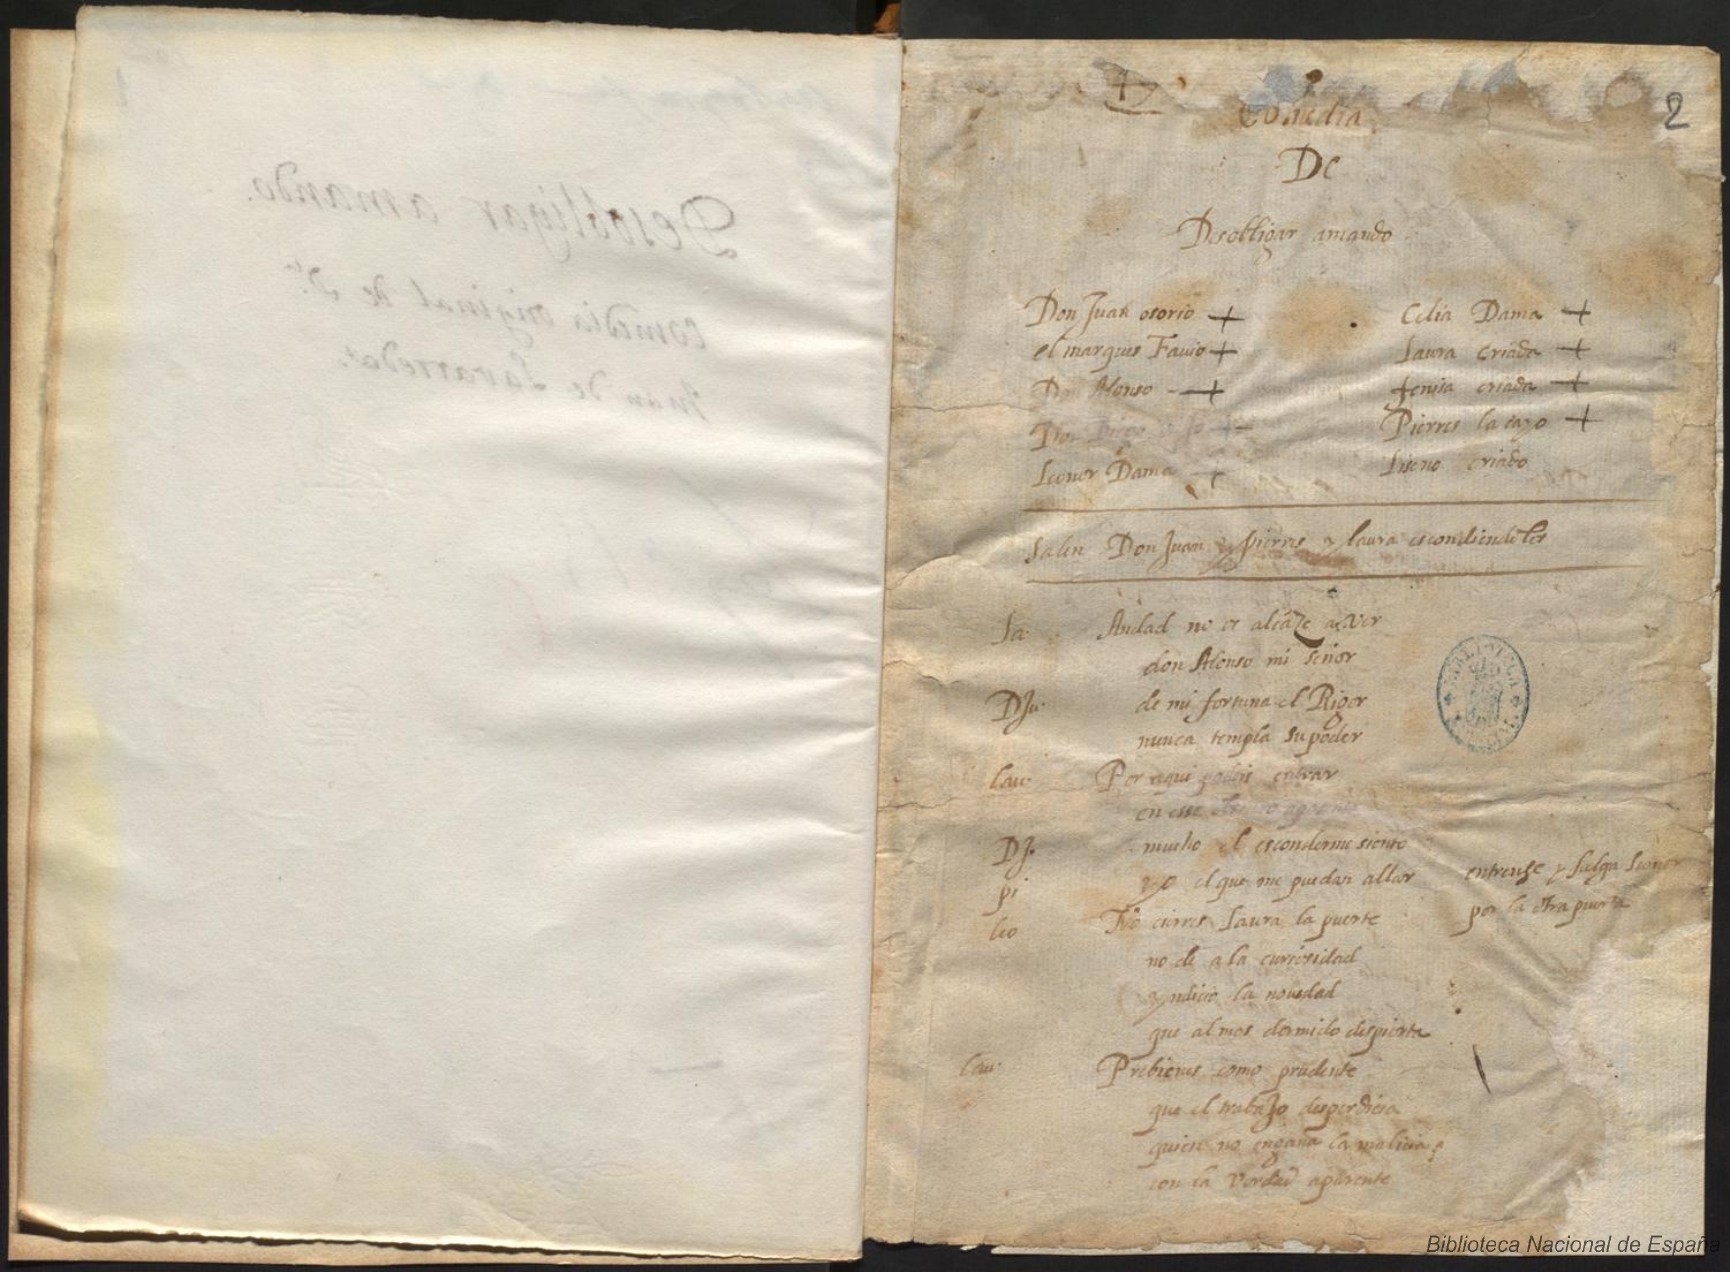 2
Comedia
De
Desobligar amando
Don Juan osorio +
el marques Fauio +
Don Alonso - +
Don
Leonor Dama +
Celia Dama +
Laura criada +
fenisa criada +
Pierres lacayo +
Liseno criado
Salen Don Juan y pierres y laura escondiendolos
La. Andad no os alcaze a Ver
don Alonso mi señor
DJu. de mi fortuna el Rigor
nunca templa su poder
lau. Por aqui podeis entrar
en esse
DJ. mucho el esconderme siento
pi yo el que me puedan allar
entrense y salga Leonor
por la otra puerta
leo No cierres Laura la puerta
no de a la curiosidad
yndicio la nouedad
que al mas dormido despierta
lau. Prebienes como prudente
que el trabaJo desperdicia
quien no engaña la malicia
con la Verdad aparente
Biblioteca Nacional de España